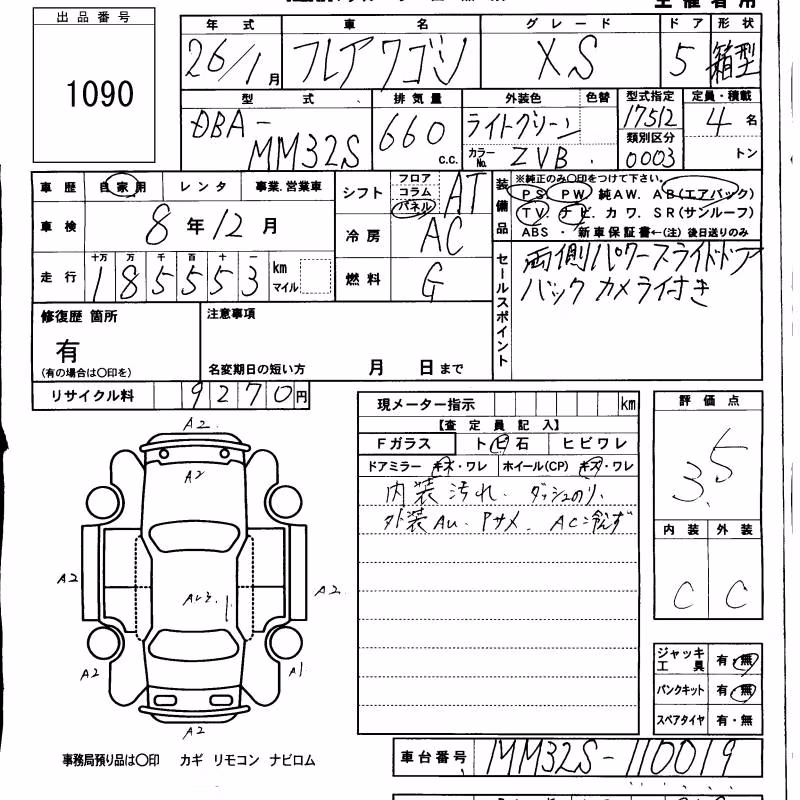 出品番号
1090
年式 車名 グレード ドア 形状
26/1月 フレアワゴン XS 5 箱型
型式 排気量 外装色 色替 型式指定 定員・積載
DBA-MM32S 660 c.c. ライトグリーン 17512 4名
カラーNo. ZVB 類別区分 0003 トン
車歴 自家用 レンタ 事業.営業車
車検 8年12月
走行 十万 万 千 百 十 一
185553 km マイル
シフト フロア コラム パネル AT
冷房 AC
燃料 G
装備品 ※純正のみ〇印をつけて下さい。
PS PW 純AW. AB(エアバック)
TV. ナビ. カワ. SR(サンルーフ)
ABS ・ 新車保証書←(注) 後日送りのみ
セールスポイント
両側パワースライドドア
バックカメラ付き
修復歴 箇所
有
(有の場合は〇印を)
注意事項
名変期日の短い方 月 日まで
リサイクル料 9270円
現メーター指示 km
【査定員記入】
Fガラス トビ石 ヒビワレ
ドアミラー キズ・ワレ ホイール(CP) キズ・ワレ
内装汚れ. ダッシュのり.
外装AU. Pサメ. AC冷えず
評価点
3.5
内装 外装
C C
A2
A2
A2
A2
A2
A1
A2
ジャッキ工具 有・無
パンクキット 有・無
スペアタイヤ 有・無
事務局預り品は〇印 カギ リモコン ナビロム
車台番号 MM32S-110019